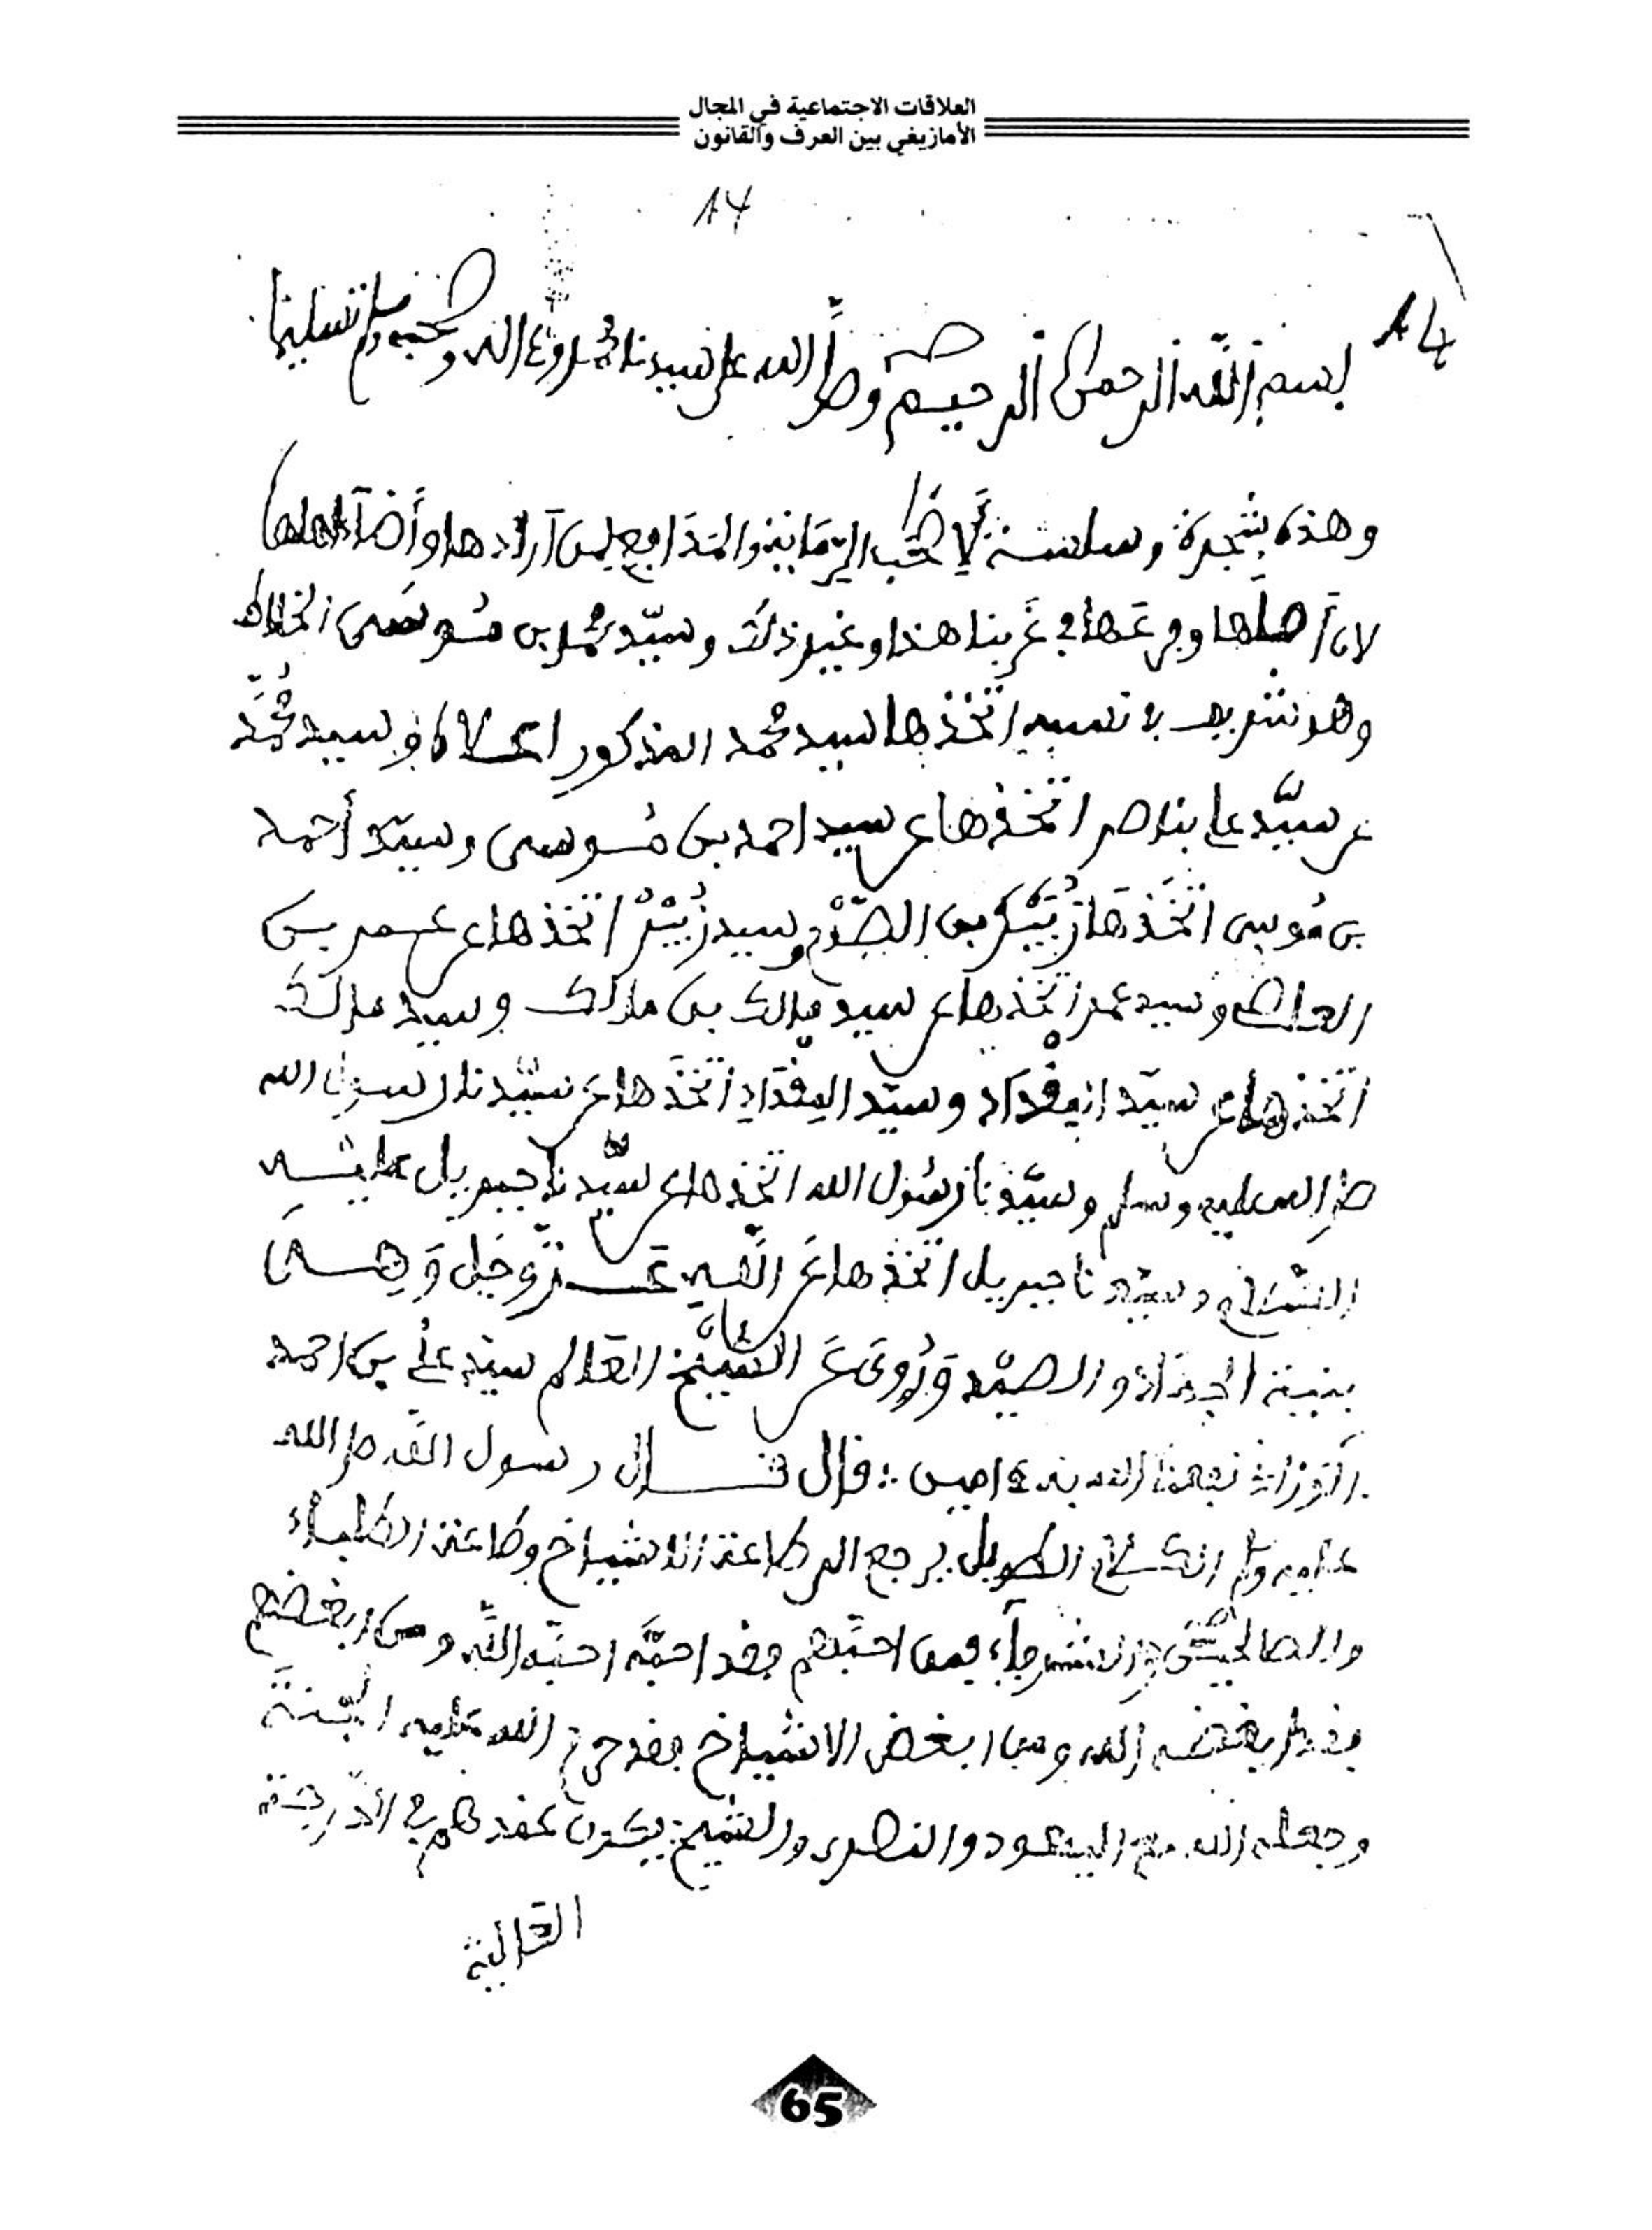 العلاقات الاجتماعية في المجال
الأمازيغي بين العرف والقانون
14
14
بسم الله الرحمن الرحيم وصلى الله على سيدنا محمد وءاله وصحبه وسلم تسليما
وهذه شجرة وسلسة لأصحاب الرماية والمدافع لمن أرادها و
لان أصلها وفرعها في غربنا هذا وغير ذلك وسيد محمد بن موسى
وهو شريف نسبه اتخذها سيد محمد المذكور وسيد محمد
عن سيد علي بناصر اتخذها عن سيد احمد بن موسى وسيد أحمد
بن موسى اتخذها زبير بن وسيد زبير اتخذها عن عمر بن
العاص وسيد عمر اتخذها عن سيد مالك بن مالك وسيد مالك
اتخذها عن سيد المقداد وسيد المقداد اتخذها عن سيدنا رسول الله
صلى الله عليه وسلم وسيدنا رسول الله اتخذها عن سيدنا جبريل عليه
السلام وسيدنا جبريل اتخذها عن الله عز وجل وهي
بنية الجهاد والصيد وروي عن الشيخ العالم سيد علي بن احمد
نفعنا الله به ءامين : قال قال رسول الله صلى الله
عليه وسلم الطويل يرجع الى طاعة الاشياخ وطاعة
والصالحين والشرفاء فمن احبهم فقد احبه احبه الله ومن ابغضهم
فقد ابغضه الله ومن ابغض الاشياخ فقد حرم الله عليه الجنة
وجعله الله مع اليهود والنصرى والشيخ يكون في الدرجة
العالية
65